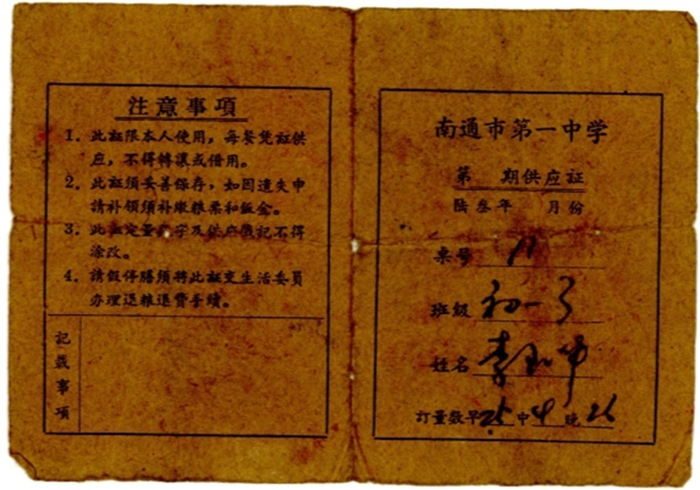 注意事項
1. 此証限本人使用，每餐凭証供
应，不得轉讓或借用。
2. 此証須妥善保存，如因遺失申
請补領須补繳粮票和飯金。
3. 此証定量 字及供应 記不得
涂改。
4. 請假停膳須將此証交生活委員
办理退粮退費手續。
記載事項
南通市第一中学
第 期供应証
陆叁年 月份
桌号 11
班級 初一
姓名 李
訂量数早 25 中 晚